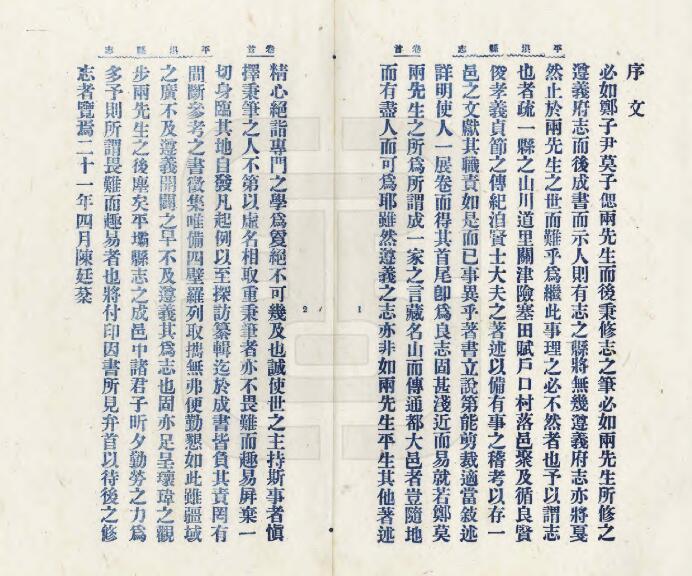 平壩縣志 卷首
序文
必如鄭子尹莫子偲兩先生而後秉修志之筆必如兩先生所修之
遵義府志而後成書而示人則有志之縣將無幾遵義府志亦將戞
然止於兩先生之世而難乎爲繼此事理之必不然者也予以謂志
也者疏一縣之山川道里關津險塞田賦戶口村落邑聚及循良賢
俊孝義貞節之傳紀洎賢士大夫之著述以備有事之稽考以存一
邑之文獻其職責如是而已事異乎著書立說第能剪裁適當敘述
詳明使人一展卷而得其首尾卽爲良志固甚淺近而易就若鄭莫
兩先生之所爲所謂成一家之言藏名山而傳通都大邑者豈隨地
而有盡人而可爲耶雖然遵義之志亦非如兩先生平生其他著述
1
平壩縣志 卷首
精心絕詣專門之學爲夐絕不可幾及也誠使世之主持斯事者愼
擇秉筆之人不第以虛名相取重秉筆者亦不畏難而趣易屛棄一
切身臨其地自發凡起例以至採訪纂輯迄於成書皆負其責罔有
間斷參考之書徵集唯備四壁羅列取攜無弗便勤懇如此雖疆域
之廣不及遵義開闢之早不及遵義其爲志也固亦足呈瓌瑋之觀
步兩先生之後塵矣平壩縣志之成邑中諸君子昕夕勤勞之力爲
多予則所謂畏難而趣易者也將付印因書所見弁首以待後之修
志者覽焉二十一年四月陳廷棻
2